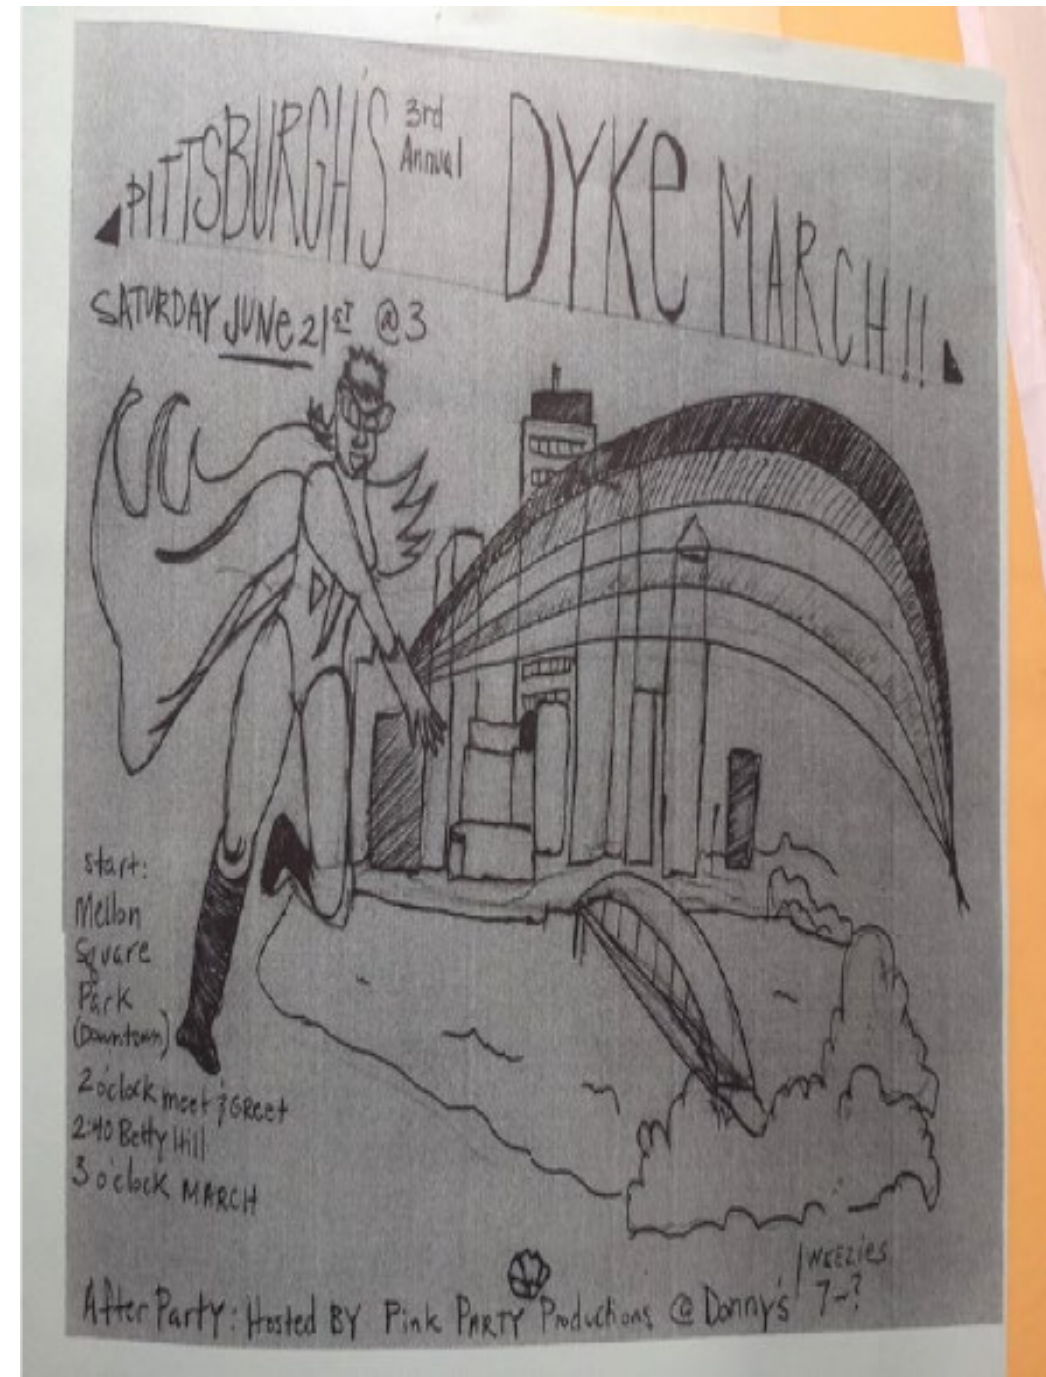 PITTSBURGH'S 3rd Annual DYKe MARCH!!
SATURDAY JUNe 21ST @ 3
start:
Mellon
Square
Park
(Downtown)
2 o'clock meet & GReet
2:40 Betty Hill
3 o'clock MARCH
After Party: Hosted BY Pink PARTY Productions @ Donny's
WEEZIES
7-?